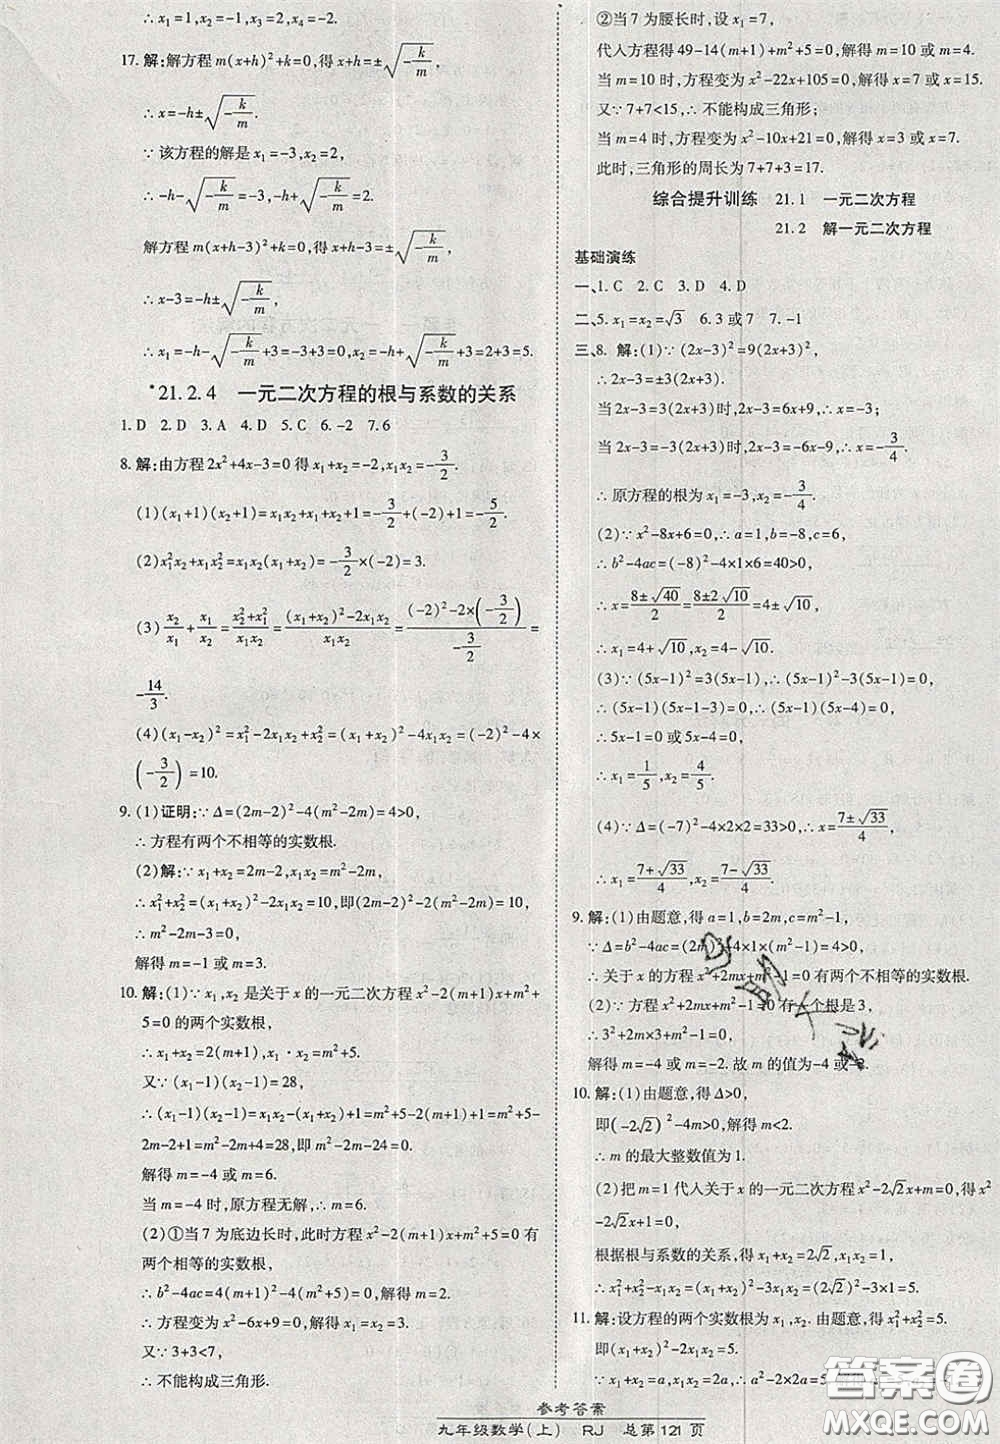 ∴x₁=1,x₂=-1,x₃=2,x₄=-2.
17. 解:解方程 m(x+h)²+k=0,得 x+h=±√(-k/m)
∴x=-h±√(-k/m).
∵该方程的解是 x₁=-3,x₂=2,
∴-h-√(-k/m)=-3,-h+√(-k/m)=2,
解方程 m(x+h-3)²+k=0,得 x+h-3=±√(-k/m),
∴x-3=-h±√(-k/m).
∴x₁=-h-√(-k/m)+3=-3+3=0,x₂=-h+√(-k/m)+3=2+3=5.
*21.2.4 一元二次方程的根与系数的关系
1. D 2. D 3. A 4. D 5. C 6. -2 7. 6
8. 解:由方程 2x²+4x-3=0 得 x₁+x₂=-2,x₁x₂=-3/2.
(1)(x₁+1)(x₂+1)=x₁x₂+x₁+x₂+1=-3/2+(-2)+1=-5/2.
(2)x₁²x₂+x₁x₂²=x₁x₂(x₁+x₂)=-3/2×(-2)=3.
(3)x₂/x₁+x₁/x₂=(x₂²+x₁²)/(x₁x₂)=((x₁+x₂)²-2x₁x₂)/(x₁x₂)=((-2)²-2×(-3/2))/(-3/2)=
-14/3.
(4)(x₁-x₂)²=x₁²-2x₁x₂+x₂²=(x₁+x₂)²-4x₁x₂=(-2)²-4×
(-3/2)=10.
9. (1)证明:∵Δ=(2m-2)²-4(m²-2m)=4>0,
∴方程有两个不相等的实数根.
(2)解:∵x₁+x₂=2m-2,x₁x₂=m²-2m,
∴x₁²+x₂²=(x₁+x₂)²-2x₁x₂=10,即(2m-2)²-2(m²-2m)=10,
∴m²-2m-3=0,
解得 m=-1 或 m=3.
10. 解:(1)∵x₁,x₂是关于 x 的一元二次方程 x²-2(m+1)x+m²+
5=0 的两个实数根,
∴x₁+x₂=2(m+1),x₁·x₂=m²+5.
又∵(x₁-1)(x₂-1)=28,
∴(x₁-1)(x₂-1)=x₁x₂-(x₁+x₂)+1=m²+5-2(m+1)+1=m²+5-
2m-2+1=28,即 m²-2m+4=28,∴m²-2m-24=0.
解得 m=-4 或 m=6.
当 m=-4 时,原方程无解,∴m=6.
(2)①当7为底边长时,此时方程 x²-2(m+1)x+m²+5=0 有
两个相等的实数根,
∴b²-4ac=4(m+1)²-4(m²+5)=0.解得 m=2.
∴方程变为 x²-6x+9=0,解得 x₁=x₂=3,
又∵3+3<7,
∴不能构成三角形.
②当7为腰长时,设 x₁=7,
代入方程得 49-14(m+1)+m²+5=0,解得 m=10 或 m=4.
当 m=10 时,方程变为 x²-22x+105=0,解得 x=7 或 x=15.
又∵7+7<15,∴不能构成三角形;
当 m=4 时,方程变为 x²-10x+21=0,解得 x=3 或 x=7.
此时,三角形的周长为 7+7+3=17.
综合提升训练 21.1 一元二次方程
21.2 解一元二次方程
基础演练
一、1. C 2. C 3. D 4. D
二、5. x₁=x₂=√3 6. 3 或 7 7. -1
三、8. 解:(1)∵(2x-3)²=9(2x+3)²,
∴(2x-3)=±3(2x+3),
当 2x-3=3(2x+3)时,2x-3=6x+9,∴x=-3,
当 2x-3=-3(2x+3)时,2x-3=-6x-9,∴x=-3/4.
∴原方程的根为 x₁=-3,x₂=-3/4.
(2)∵x²-8x+6=0,∴a=1,b=-8,c=6,
∴b²-4ac=(-8)²-4×1×6=40>0,
∴x=(8±√40)/2=(8±2√10)/2=4±√10,
∴x₁=4+√10,x₂=4-√10.
(3)∵(5x-1)²=3(5x-1),∴(5x-1)²-3(5x-1)=0,
∴(5x-1)(5x-1-3)=0,∴(5x-1)(5x-4)=0,
∴5x-1=0 或 5x-4=0,
∴x₁=1/5,x₂=4/5.
(4)∵Δ=(-7)²-4×2×2=33>0,∴x=(7±√33)/4
∴x₁=(7+√33)/4,x₂=(7-√33)/4.
9. 解:(1)由题意,得 a=1,b=2m,c=m²-1,
∵Δ=b²-4ac=(2m)²-4×1×(m²-1)=4>0,
∴关于 x 的方程 x²+2mx+m²-1=0 有两个不相等的实数根.
(2)∵方程 x²+2mx+m²-1=0 有一个根是 3,
∴3²+2m×3+m²-1=0,
解得 m=-4 或 m=-2. 故 m 的值为-4 或-2.
10. 解:(1)由题意,得 Δ>0,
即(-2√2)²-4m>0,解得 m<2.
∴m 的最大整数值为 1.
(2)把 m=1 代入关于 x 的一元二次方程 x²-2√2x+m=0,得 x²
-2√2x+1=0,
根据根与系数的关系,得 x₁+x₂=2√2,x₁x₂=1,
∴x₁²+x₂²-x₁x₂=(x₁+x₂)²-3x₁x₂=(2√2)²-3×1=5.
11. 解:设方程的两个实数根为 x₁,x₂. 由题意,得 x₁²+x₂²=5.
即(x₁+x₂)²-2x₁x₂=5. ∴a²-2×2a=5.
参考答案
九年级数学(上) RJ 总第 121 页
答案圈
MXQE.COM